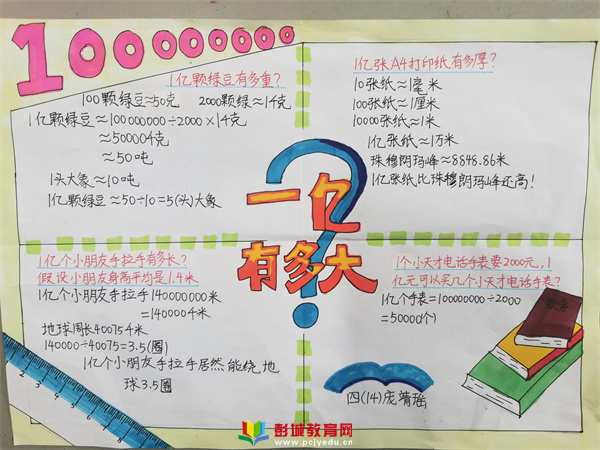 100000000
1亿颗绿豆有多重?
100颗绿豆≈50克 2000颗绿≈1千克
1亿颗绿豆≈100000000÷2000×1千克
≈50000千克
≈50吨
1头大象≈10吨
1亿颗绿豆≈50÷10=5(头)大象
1亿张A4打印纸有多厚?
10张纸≈1毫米
100张纸≈1厘米
10000张纸≈1米
1亿张纸≈1万米
珠穆朗玛峰≈8848.86米
1亿张纸比珠穆朗玛峰还高!
一亿
有多大
?
1亿个小朋友手拉手有多长?
假设小朋友身高平均是1.4米
1亿个小朋友手拉手140000000米
=140000千米
地球周长40075千米
140000÷40075=3.5(圈)
1亿个小朋友手拉手居然能绕地
球3.5圈
1个小天才电话手表要2000元,1
亿元可以买几个小天才电话手表?
1亿个手表=100000000÷2000
=50000(个)
数学
1 2 3 4 5 6 7 8
四(14)庞靖瑶
彭城教育网
www.pcjyedu.cn